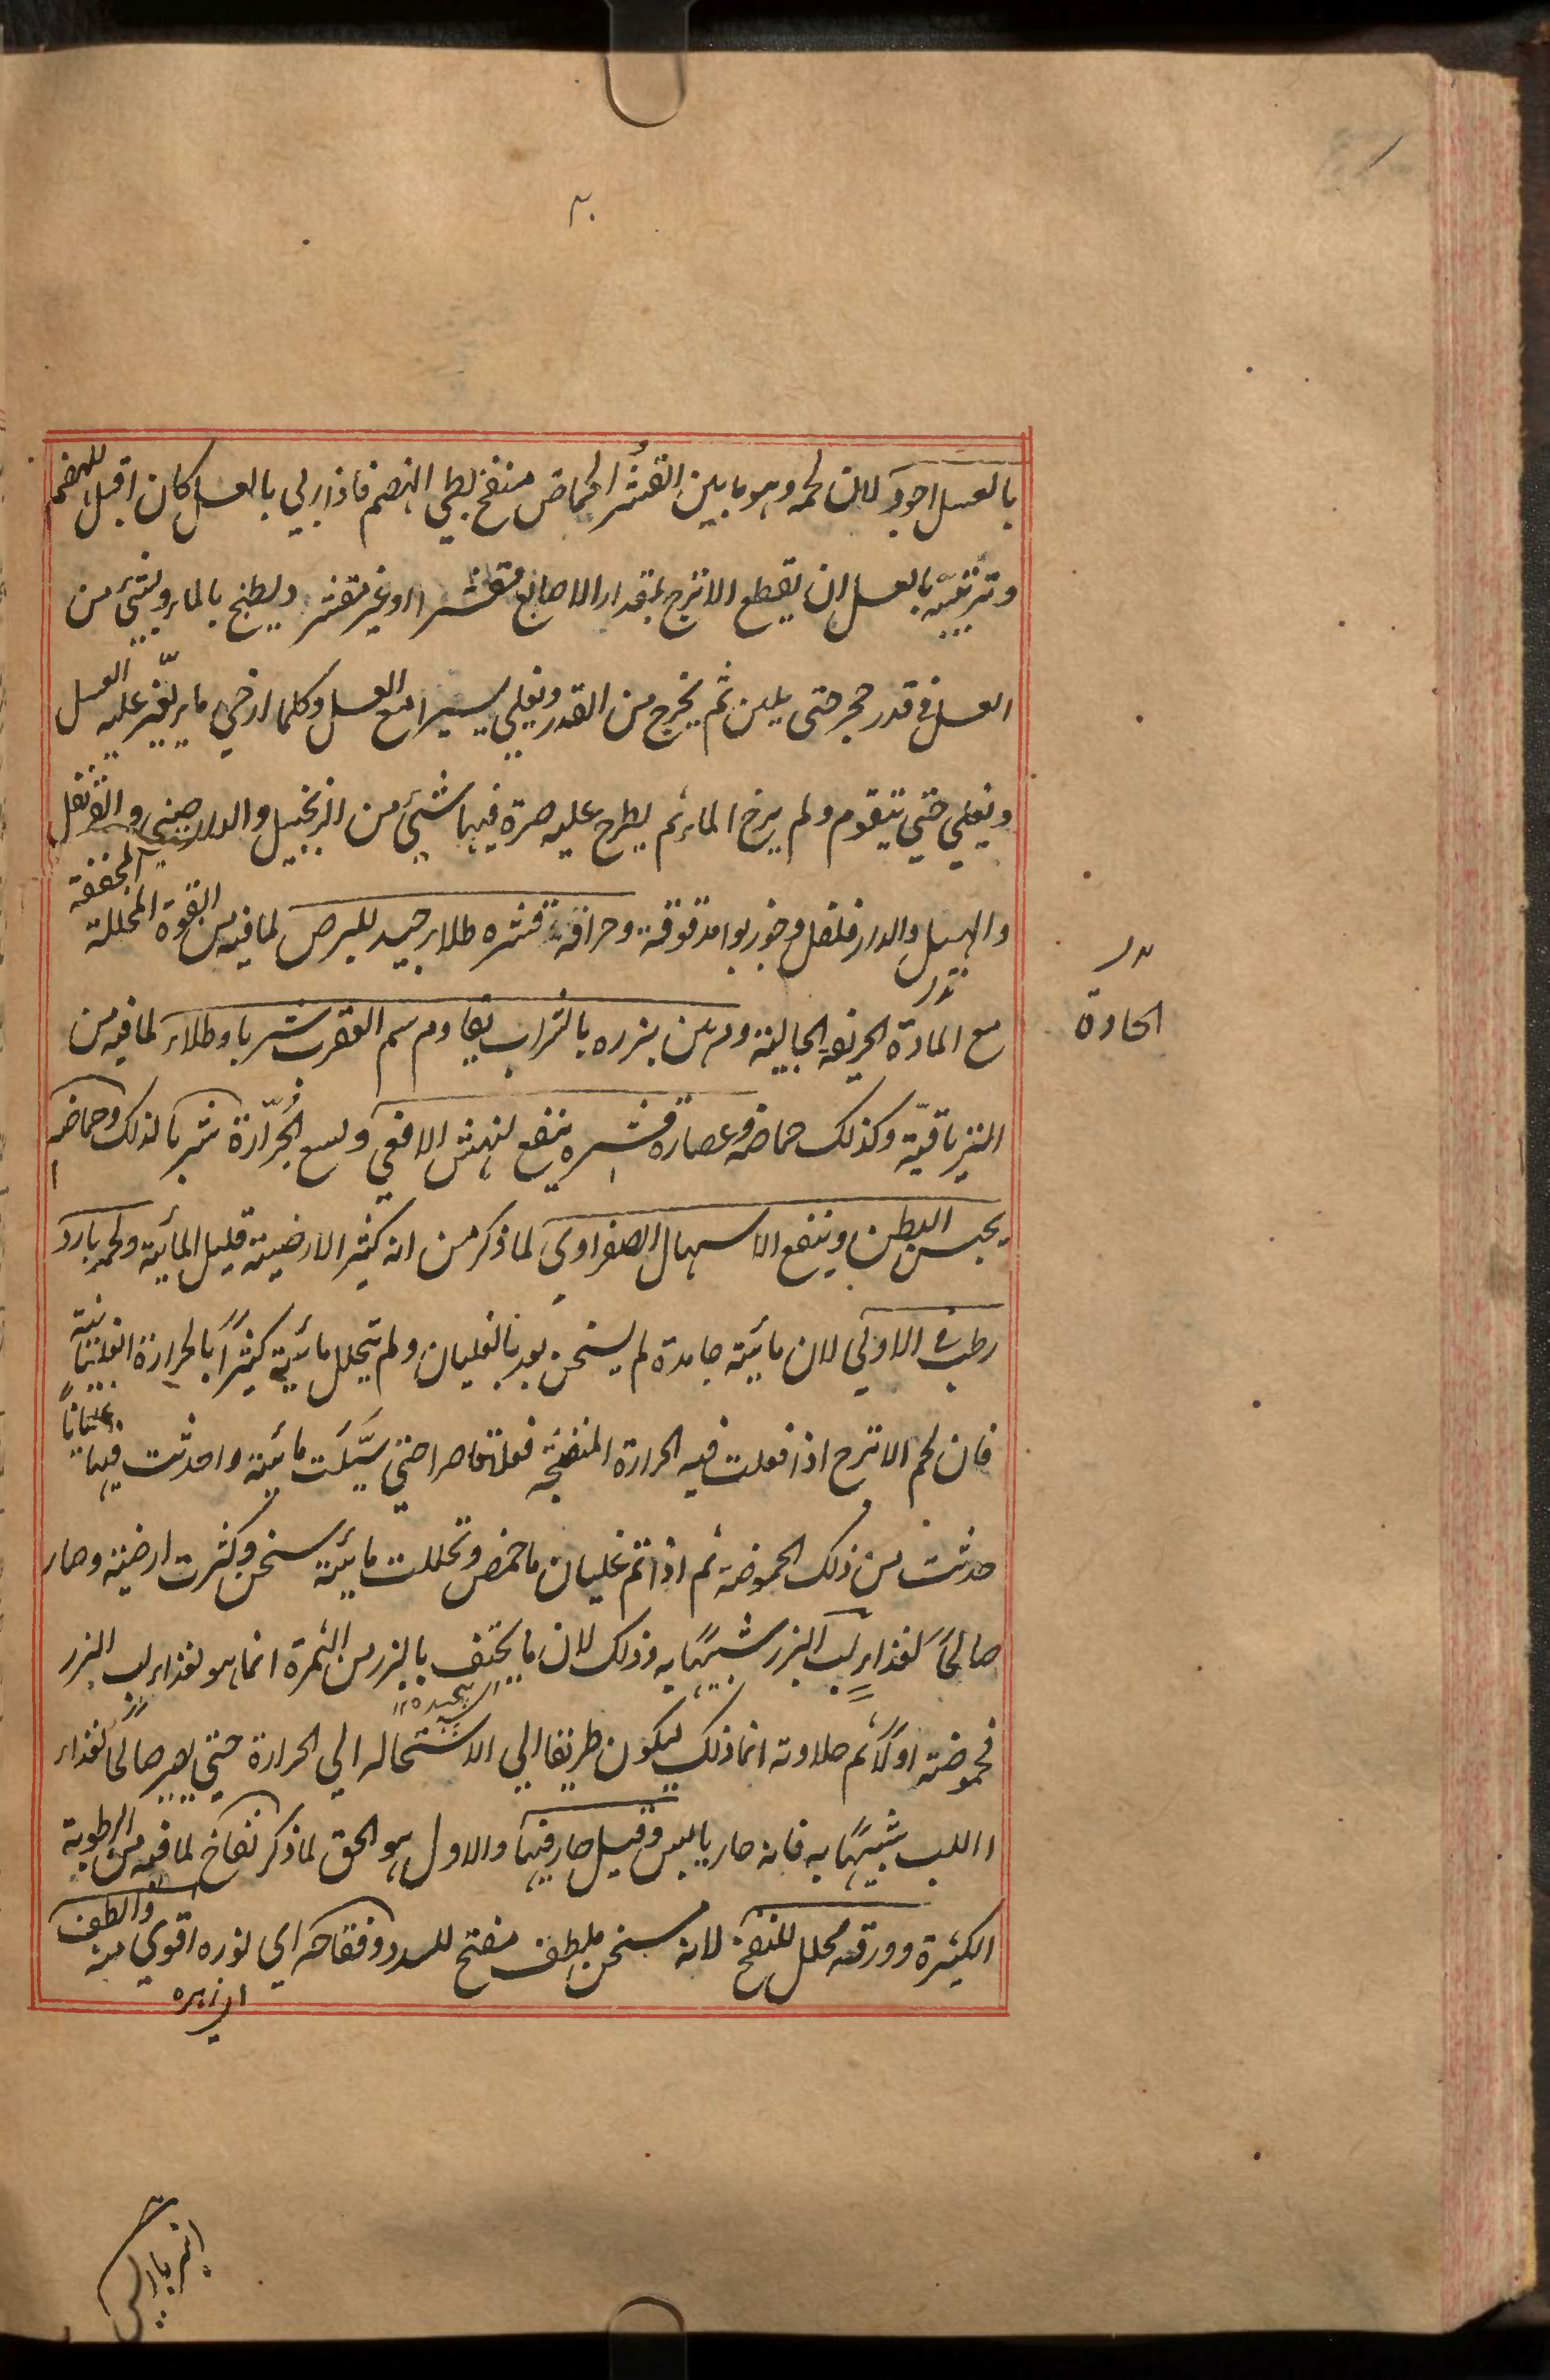 بالعسل اجود لان لحمه وهو ما بين القشر والحماض منفخ بطي الهضم فاذا ربي بالعسل كان اقبل للهضم
وتربيته بالعسل ان يقطع الاترج بمقدار الاصابع مقشرا او غير مقشر ويطبخ بالماء وبشئ من
العسل في قدر حجر حتى يلين ثم يخرج من القدر ويغلي يسيرا مع العسل وكلما ارخي ماء يغير عليه العسل
ويغلي حتي يتقوم ولم يرخ الماء ثم يطرح عليه صرة فيها شئ من الزنجبيل والدارصيني والقرنفل
والهيل والدارفلفل وجوزبوا مدقوقة وحراقة قشره طلاء جيد للبرص لما فيه من القوة المحللة المجففة
مع المادة الحريفة الجالية ودرهمين بزره بالشراب يقاوم سم العقرب شربا وطلاء لما فيه من
الحادة
الترياقية وكذلك حماضه وعصارة قشره ينفع لنهش الافعي ولسع الجرّارة شربا لذلك وحماضه
يحبس البطن وينفع الاسهال الصفراوي لما ذكر من انه كثير الارضية قليل المائية ولحمه بارد
رطب في الاولي لان مائيته جامدة لم يسخن بعد بالغليان ولم تتحلل مائيته كثيرًا بالحرارة الغليانية
فان لحم الاترج اذا فعلت فيه الحرارة المنضجة فعلا قاصرا حتي سيّلت مائيته واحدثت فيها غليانًا
حدثت من ذلك الحموضة ثم اذا تم غليان ما حمض وتحللت مائيته سخن وكثرت ارضيته وصار
صالحًا لغذاء لب البزر شبيهًا به وذلك لان ما يحتف بالبزر من الثمرة انما هو لغذاء لب البزر
فحموضته اولًا ثم حلاوته انما ذلك ليكون طريقا الي الاستحاله الي الحرارة حتي يصير صالحًا لغذاء
االلب شبيهًا به فانه حار يابس وقيل حار فيها والاول هو الحق لما ذكر نفاخ لما فيه من الرطوبة
الكثيرة وورقه محلل للنفخ لانه مسخن ملطف مفتح للسدد وفقاحه اي نوره اقوي منه والطف
اي زهره
انبرباريس